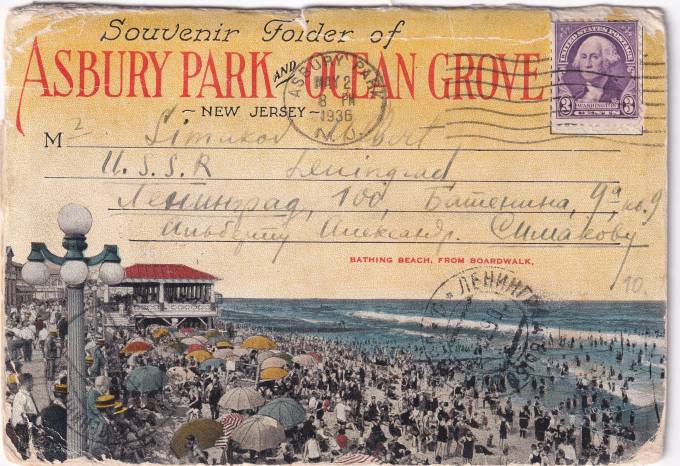 Souvenir Folder of
ASBURY PARK AND OCEAN GROVE
~ NEW JERSEY ~
ASBURY PARK
MAY 2
8 PM
1936
N.J.
UNITED STATES POSTAGE
3 WASHINGTON 3
CENTS
Mr Simakov Albert
U.S.S.R Leningrad
Ленинград, 100, Батенина, 9а, кв. 9
Альберту Александр. Симакову
BATHING BEACH, FROM BOARDWALK,
10.
ЛЕНИНГРАД